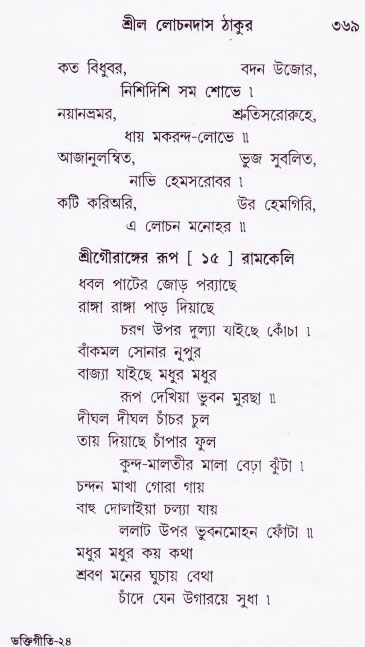 শ্রীল লোচনদাস ঠাকুর ৩৬৯
কত বিধুবর, বদন উজোর,
নিশিদিশি সম শোভে ।
নয়ানভ্রমর, শ্রুতিসরোরুহে,
ধায় মকরন্দ-লোভে ॥
আজানুলম্বিত, ভুজ সুবলিত,
নাভি হেমসরোবর ।
কটি করিঅরি, উর হেমগিরি,
এ লোচন মনোহর ॥
শ্রীগৌরাঙ্গের রূপ [ ১৫ ] রামকেলি
ধবল পাটের জোড় পর‍্যাছে
রাঙ্গা রাঙ্গা পাড় দিয়াছে
চরণ উপর দুল্যা যাইছে কোঁচা ।
বাঁকমল সোনার নূপুর
বাজ্যা যাইছে মধুর মধুর
রূপ দেখিয়া ভুবন মুরছা ॥
দীঘল দীঘল চাঁচর চুল
তায় দিয়াছে চাঁপার ফুল
কুন্দ-মালতীর মালা বেঢ়া ঝুঁটা ।
চন্দন মাখা গোরা গায়
বাহু দোলাইয়া চল্যা যায়
ললাট উপর ভুবনমোহন ফোঁটা ॥
মধুর মধুর কয় কথা
শ্রবণ মনের ঘুচায় বেথা
চাঁদে যেন উগারয়ে সুধা ।
ভক্তিগীতি-২৪